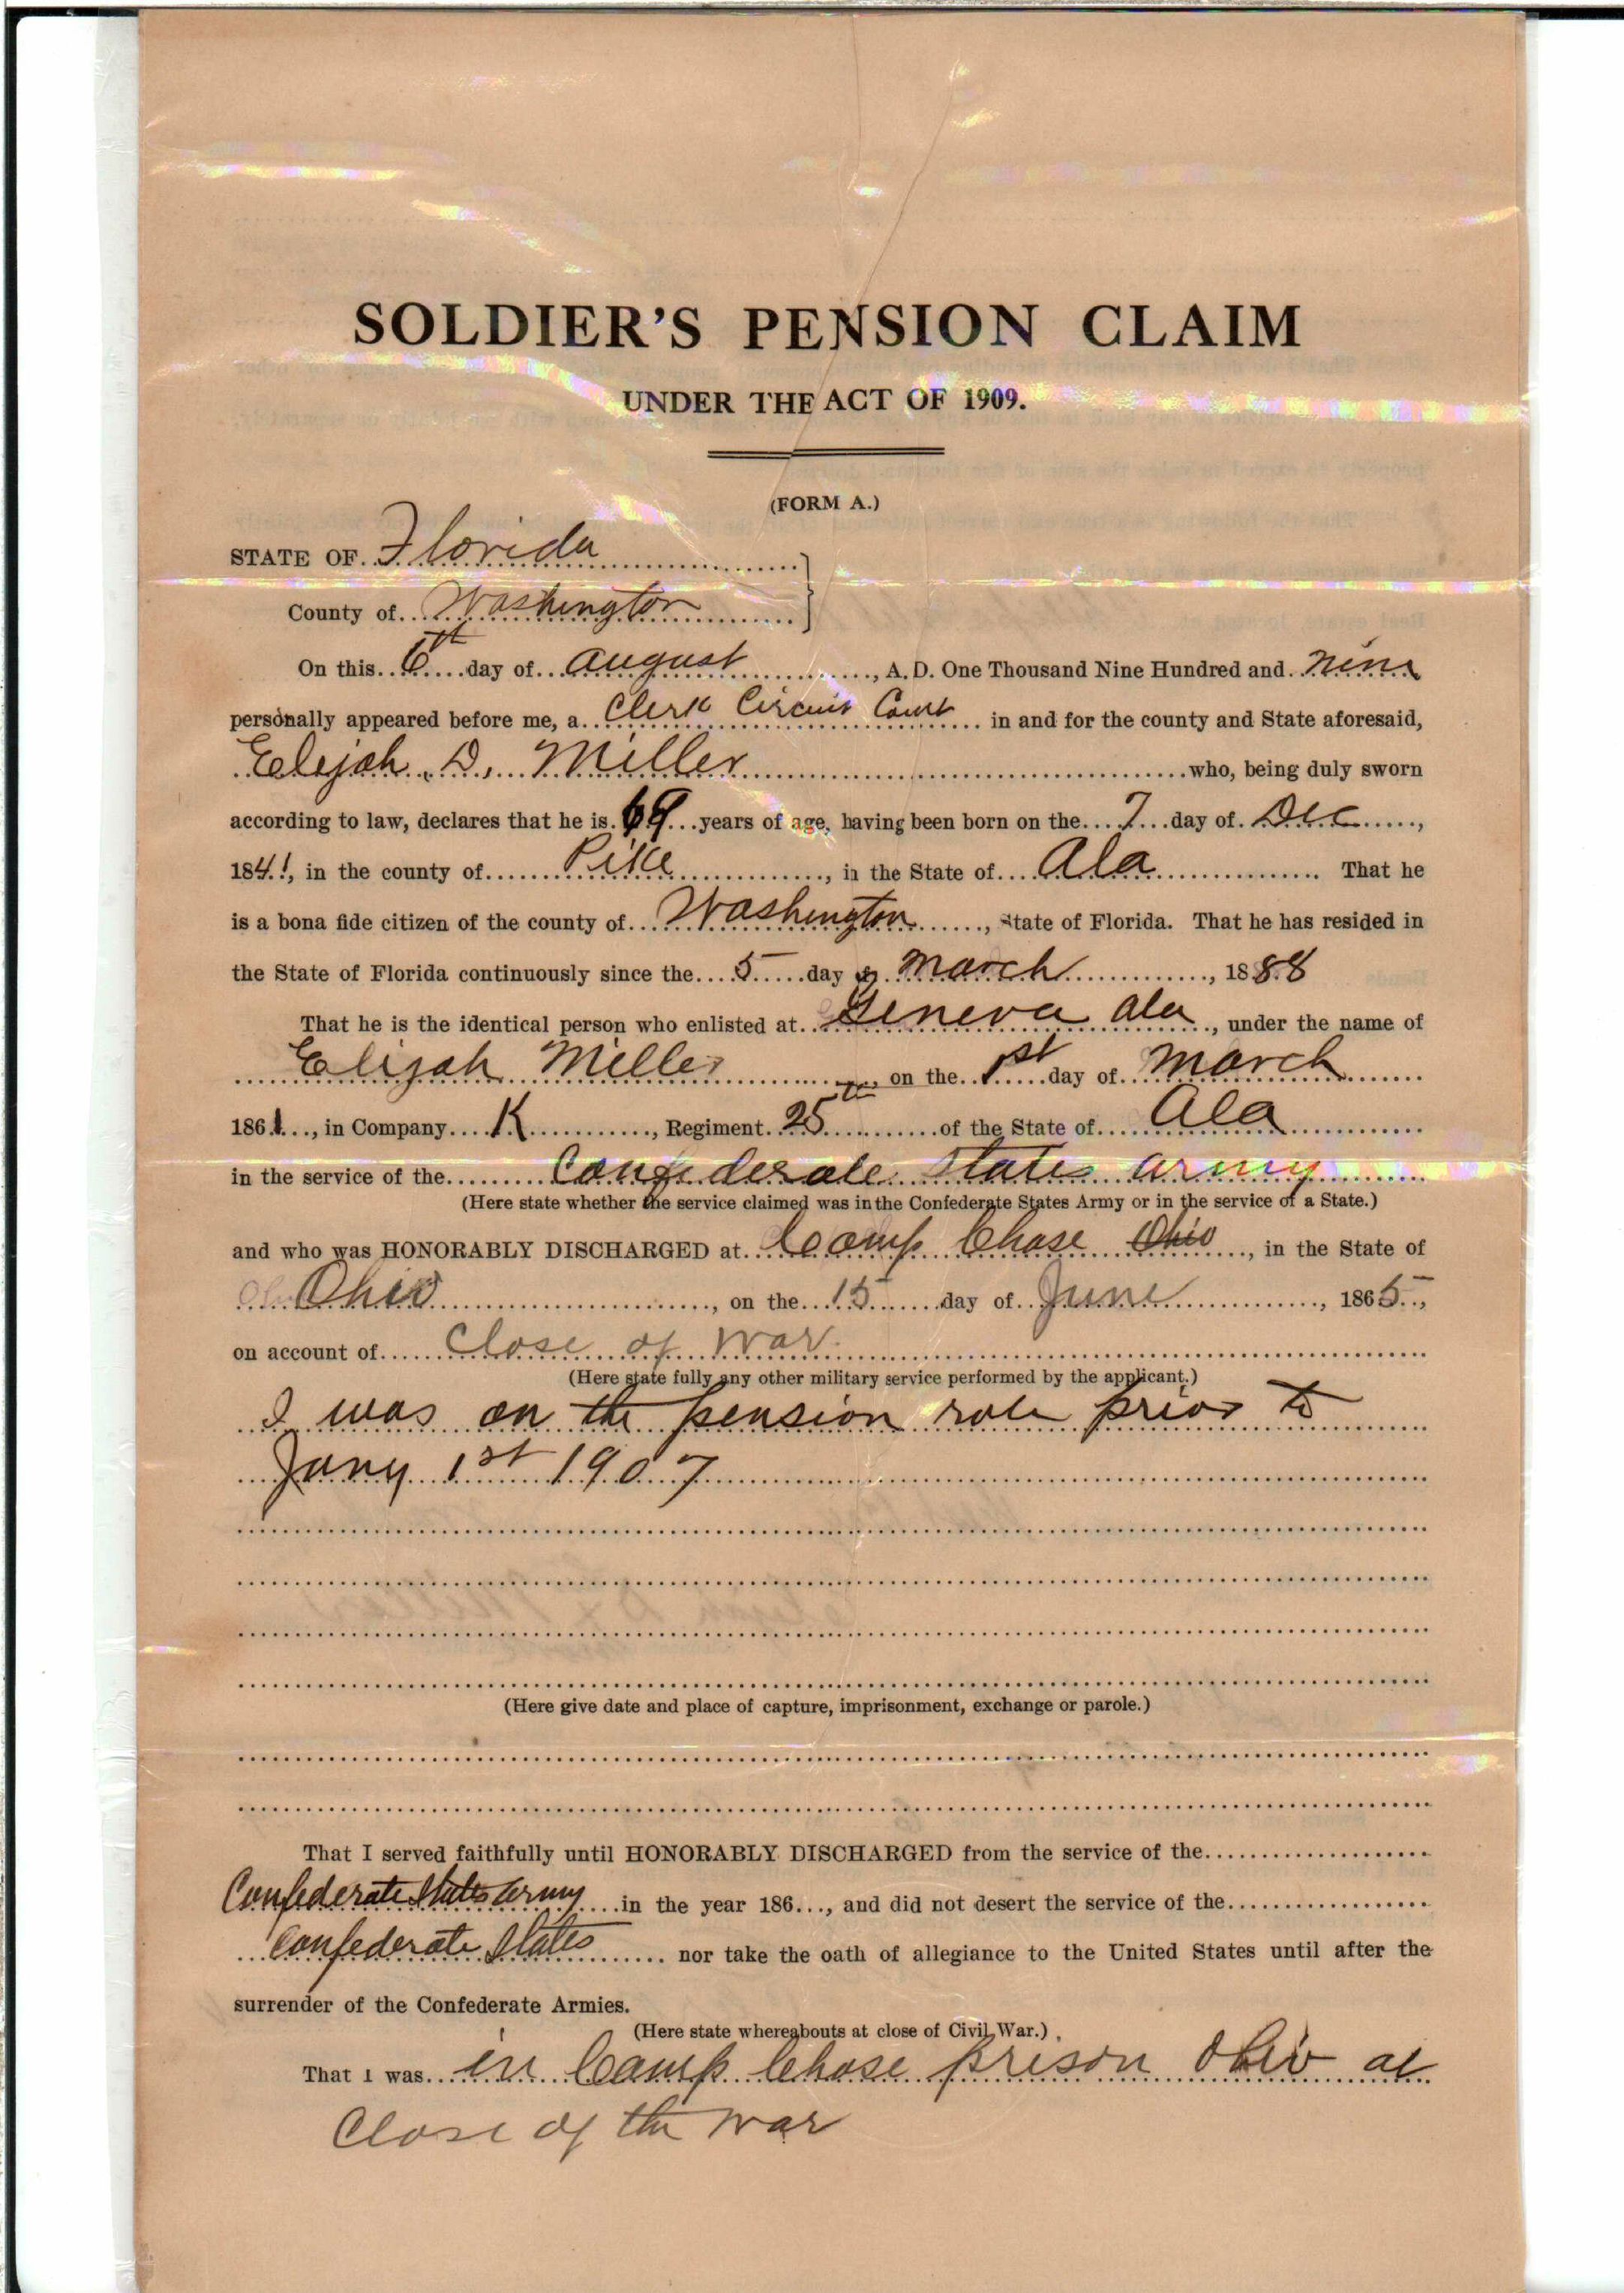 SOLDIER'S PENSION CLAIM
UNDER THE ACT OF 1909.
(FORM A.)
STATE OF Florida
County of Washington
On this 6th day of August, A. D. One Thousand Nine Hundred and nine
personally appeared before me, a Clerk Circuit Court in and for the county and State aforesaid,
Elijah D. Miller who, being duly sworn
according to law, declares that he is 69 years of age, having been born on the 7 day of Dec,
1841, in the county of Pike, in the State of Ala. That he
is a bona fide citizen of the county of Washington, State of Florida. That he has resided in
the State of Florida continuously since the 5 day of March, 1888
That he is the identical person who enlisted at Geneva Ala, under the name of
Elijah Miller, on the 1st day of March
1861, in Company K, Regiment 25th of the State of Ala
in the service of the Confederate States Army
(Here state whether the service claimed was in the Confederate States Army or in the service of a State.)
and who was HONORABLY DISCHARGED at Camp Chase Ohio, in the State of
Ohio, on the 15 day of June, 1865,
on account of Close of War.
(Here state fully any other military service performed by the applicant.)
I was on the pension role prior to
Jany 1st 1907
(Here give date and place of capture, imprisonment, exchange or parole.)
That I served faithfully until HONORABLY DISCHARGED from the service of the
Confederate States Army in the year 186..., and did not desert the service of the
Confederate States nor take the oath of allegiance to the United States until after the
surrender of the Confederate Armies.
(Here state whereabouts at close of Civil War.)
That I was in Camp Chase prison Ohio at
Close of the War